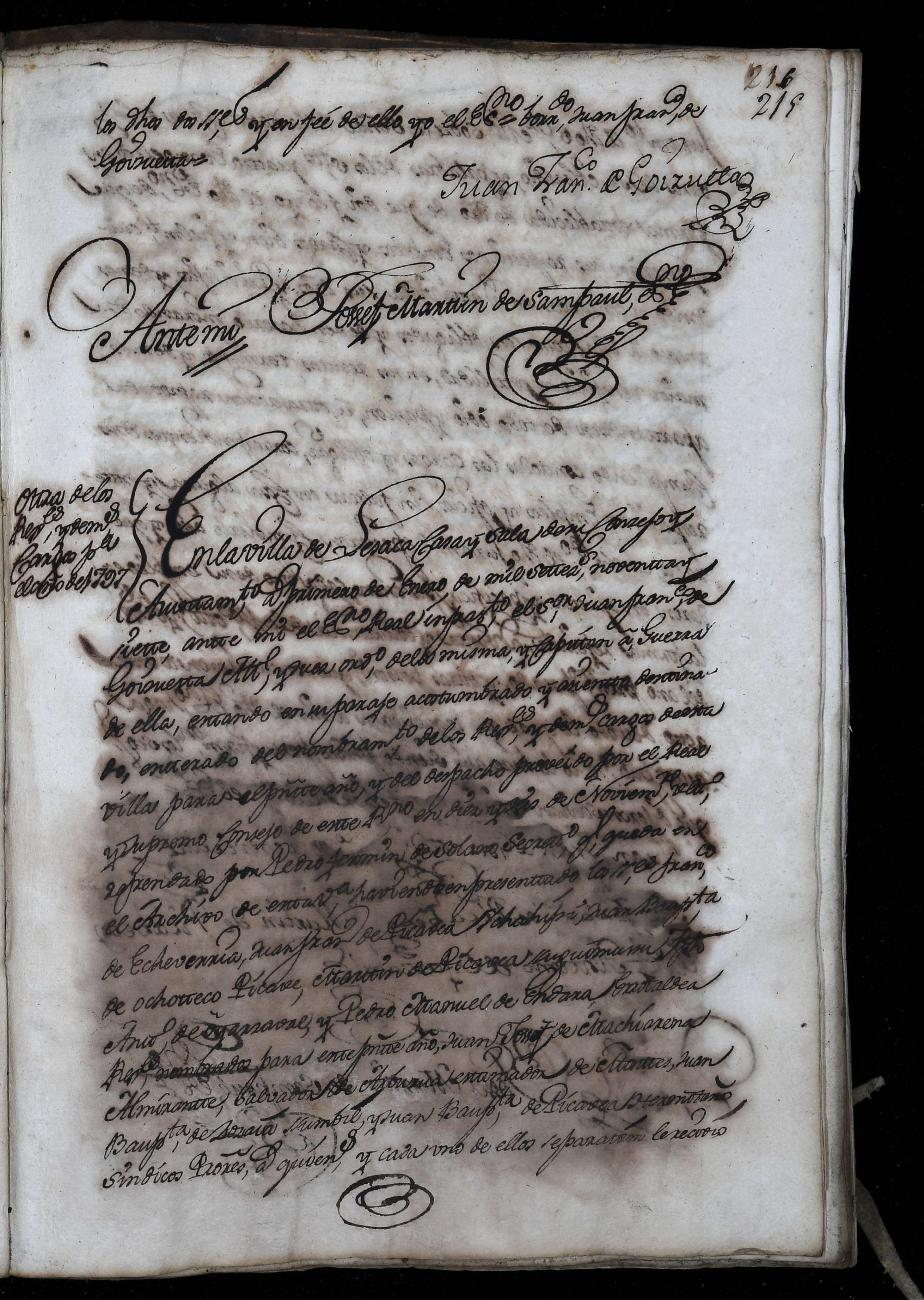 216
215
los dhos dos s.res y en feé de ello yo el Esno don Juan Franco de
Goizueta=
Juan Franco de Goizueta
Antemi Josef Martin de Sampaul, esno
Otra de los
Regres, y demas
Cargos pa el
año de 1797
En la villa de Lesaca Casa y Sala de su Conzejo y
Ayuntamto a primero de Enero, de mil settes, noventta y
siette, antte mi el Esno Real infrascto el Sor Juan Franco de
Goizuetta Alle, y Juez ordo de la misma, y Capitan á Guerra
de ella, estando en su paraje acostumbrado y asientto desttina
do, enterado del nombramto de los Regres, y demas cargos de esta
villa para el preste año, y del despacho proveido por el Real
y Supremo Consejo de este Rno en diez y seis de Noviembre,
refrendado por Pedro Fermin de Solano Secretto qe queda en
el Archivo de esta va haviendo en presenttado los sres Franco
de Echeverria, Juan Franco de Picavea Juan Baupta
de Ochotteco Picave, Marttin de Picavea
Anto, de Ygarzaval, y Pedro Manuel de Endara
Regres nombrados para este preste año, Juan de Machiarena
Almirante, Salvador de estimador de Montes, Juan
Baupta, de Sumbil, y Juan Baupta, de Picavea
Sindicos Prores, á quienes y cada uno de ellos separatim le recivio